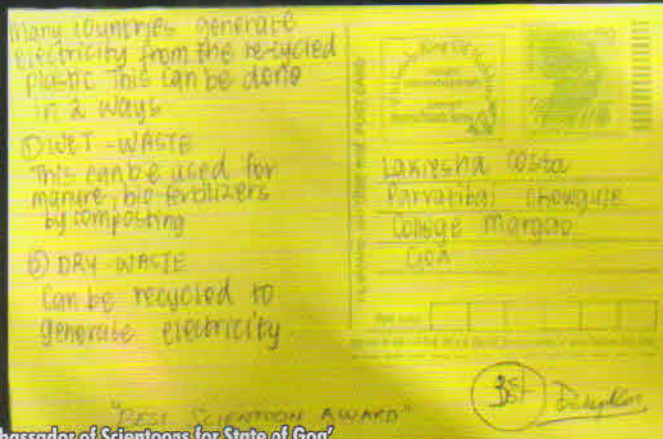 Many countries generate
electricity from the recycled
plastic This can be done
in 2 ways
① WET - WASTE
This can be used for
manure, bio fertilizers
by composting
② DRY - WASTE
Can be recycled to
generate electricity.
POST CARD
Lakiesha Costa
Parvatibai Chowgule
College Margao
Goa
"BEST SCIENTOON AWARD"
bassador of Scientoons for State of Goa'